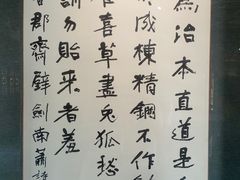 為治本直道是
成棟精鋼不作
喜草盡兔狐愁
訓勿貽来者羞
郡齋壁劍南蕭